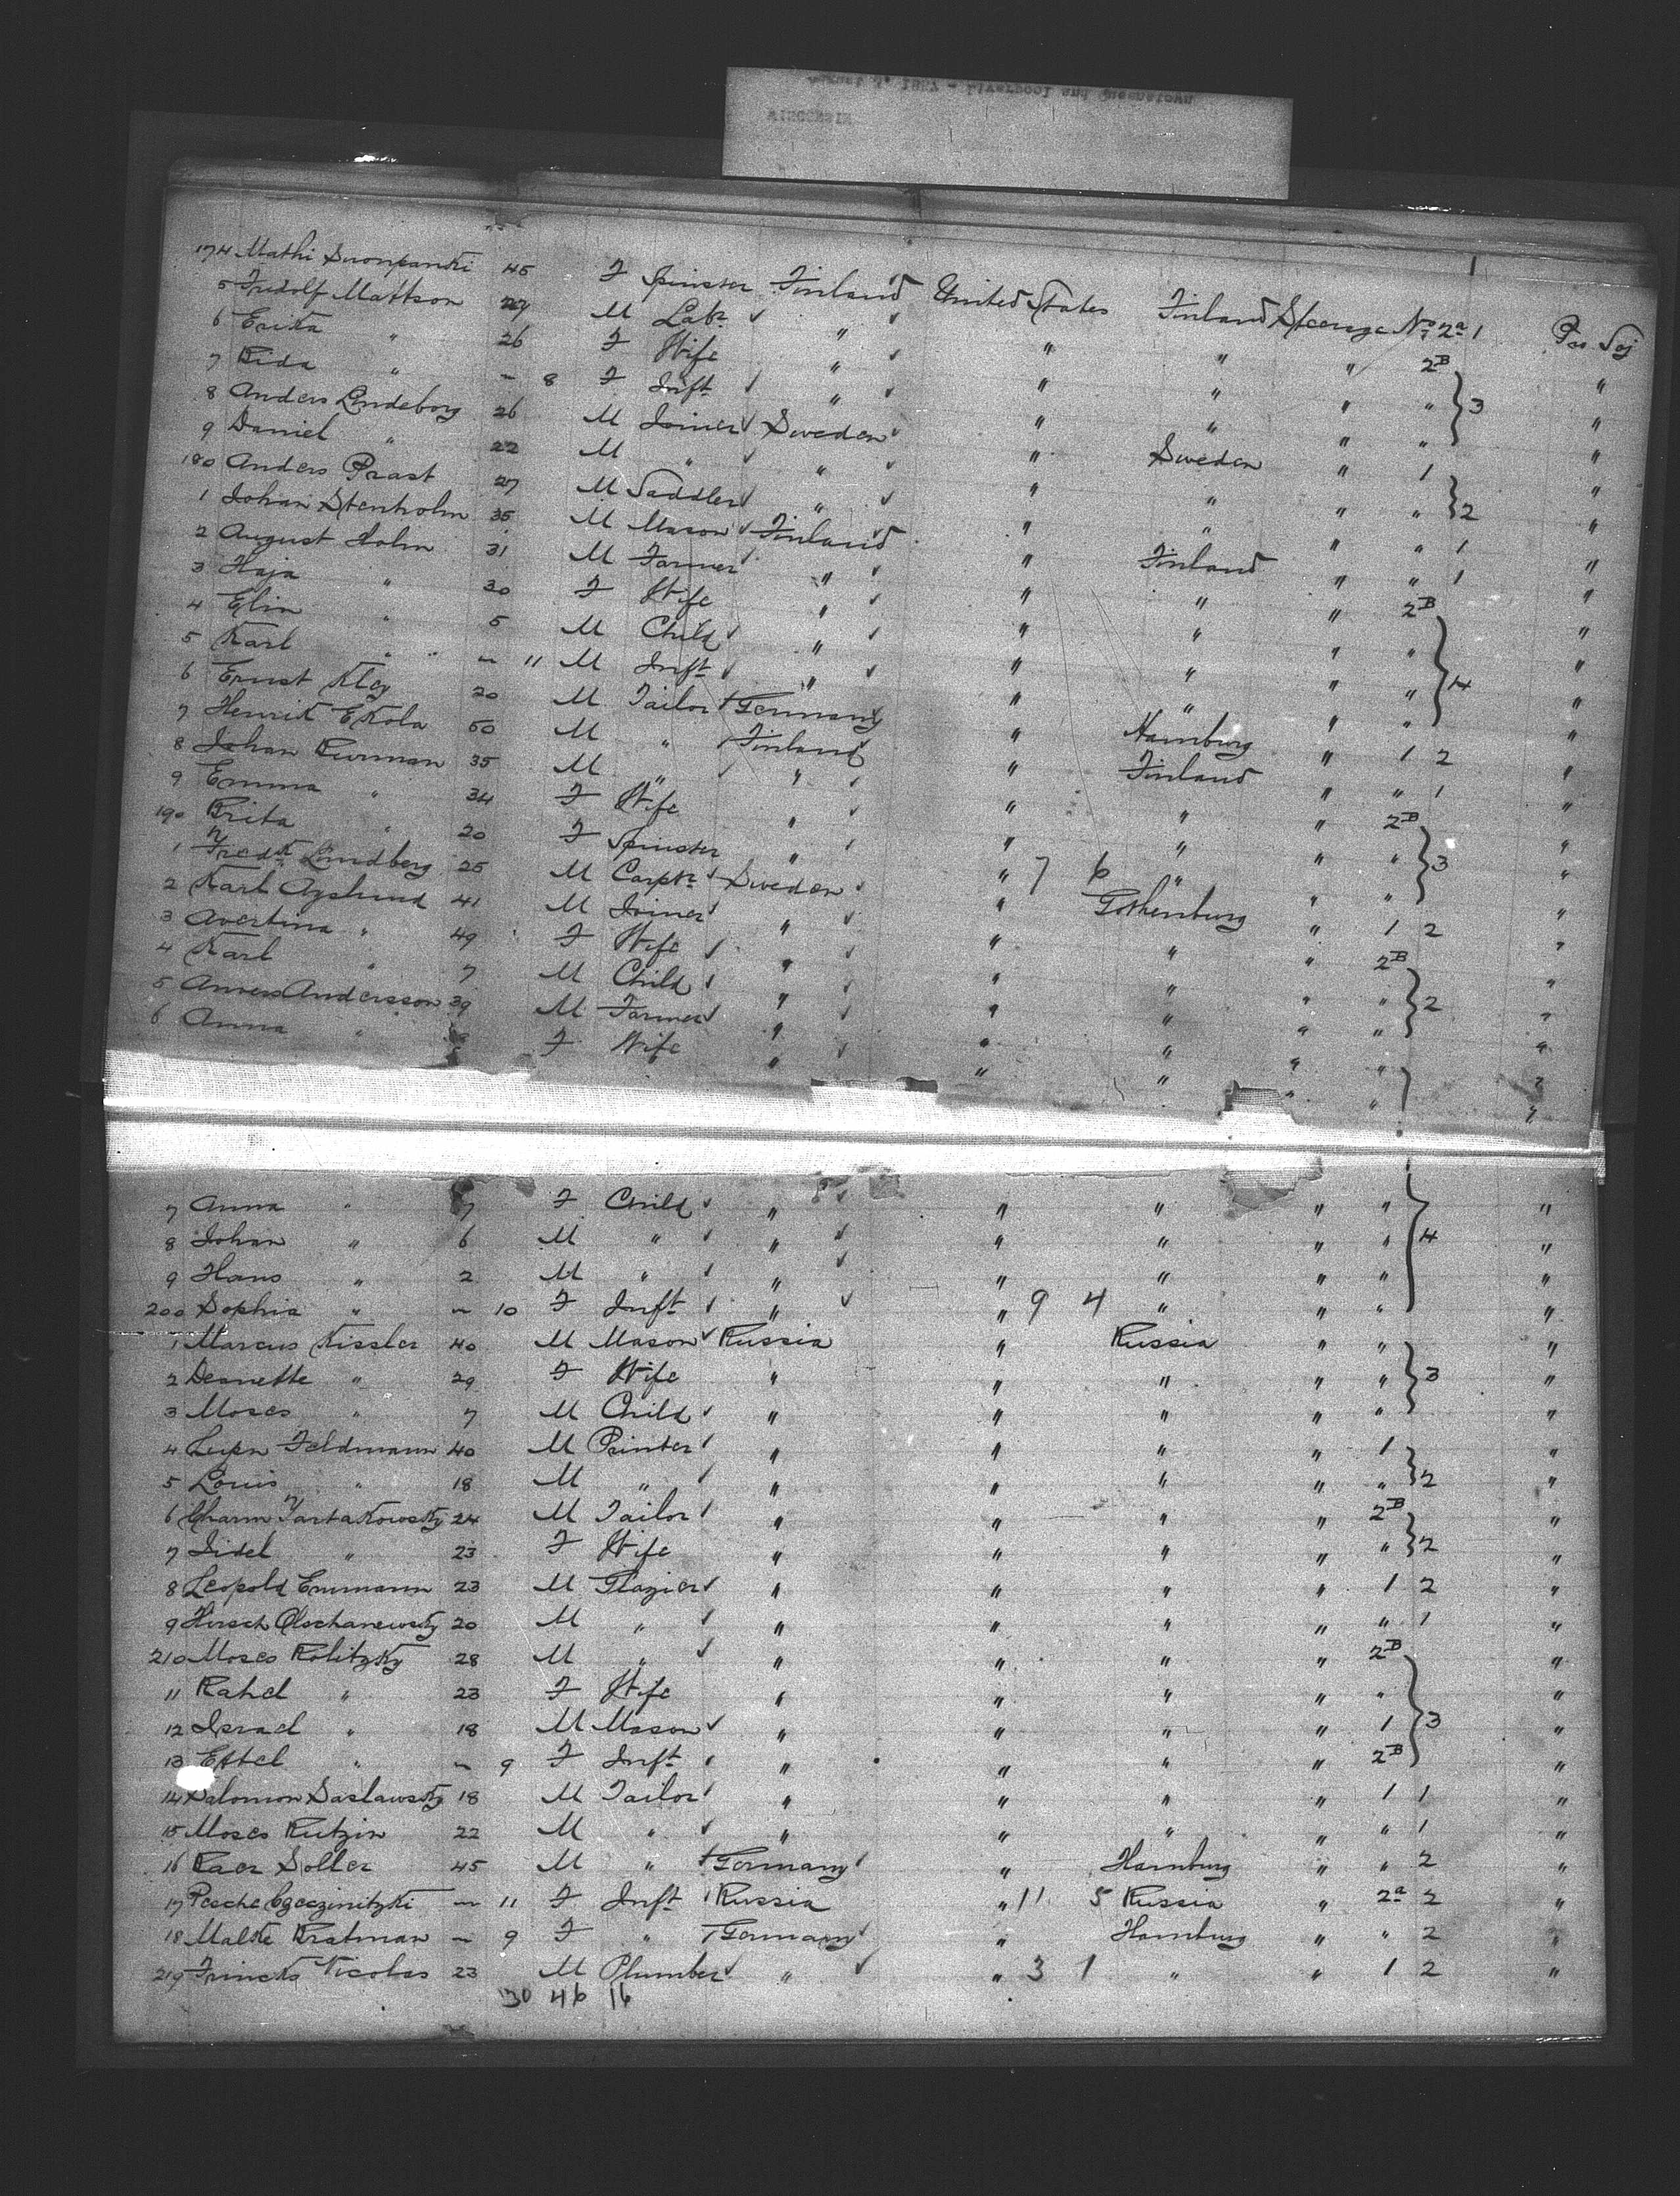 174 Mathi 45 F Spinster Finland United States Finland Steerage No 2a 1
5 Fridolf Mattson 27 M Labr " " " " 2B "
6 Erika " 26 F Wife " " " " " "
7 Rida " - 8 F Inft " " " " " 3 "
8 Anders Lindeborg 26 M Joiner Sweden " Sweden " 1 "
9 Daniel " 22 M " " " " " " 2 "
180 Anders Prast 27 M Saddler " " " " " 1 "
1 Johan Stenholm 35 M Mason Finland " Finland " " 1 "
2 August Holm 31 M Farmer " " " " 2B "
3 Haja " 30 F Wife " " " " " "
4 Elin " 5 M Child " " " " " "
5 Karl " - 11 M Inft " " " " " 4 "
6 Ernst Kley 20 M Tailor Germany " Hamburg " 1 2 "
7 Henrik Ekola 50 M " Finland " Finland " " 1 "
8 Johan 35 M " " " " " 2B "
9 Emma " 34 F Wife " " " " " "
190 Brita " 20 F Spinster " " 7 6 " " " 3 "
1 Fredk Lundberg 25 M Carptr Sweden " Gothenburg " 1 2 "
2 Karl 41 M Joiner " " " " 2B "
3 Avertina " 49 F Wife " " " " " "
4 Karl " 7 M Child " " " " " 2 "
5 Andersson 39 M Farmer " " " " " "
6 Anna " F Wife " " " " " "
7 Anna " 7 F Child " " " " " "
8 Johan " 6 M " " " " " " 4 "
9 Hans " 2 M " " " " " " "
200 Sophia " - 10 F Inft " " 9 4 " " " "
1 Marcus Kissler 40 M Mason Russia " Russia " " "
2 Deanette " 29 F Wife " " " " " 3 "
3 Moses " 7 M Child " " " " " "
4 Feldmann 40 M Printer " " " " 1 "
5 Louis " 18 M " " " " " " 2 "
6 Charm Tartakowsky 24 M Tailor " " " " 2B "
7 Lidel " 23 F Wife " " " " " 2 "
8 Leopold Emmann 23 M Glazier " " " " 1 2 "
9 Hirsch Olschanewsky 20 M " " " " " " 1 "
210 Moses Rolitzky 28 M " " " " " 2B "
11 Rahel " 23 F Wife " " " " " "
12 Israel " 18 M Mason " " " " 1 3 "
13 Ettel " - 9 F Inft " " " " 2B "
14 Salomon Saslawsky 18 M Tailor " " " " 1 1 "
15 Moses Rutzin 22 M " " " " " " 1 "
16 Soller 45 M " Germany " Hamburg " " 2 "
17 Pesche - 11 F Inft Russia " 11 5 Russia " 2a 2 "
18 Malke Bratman - 9 F " Germany " Hamburg " " 2 "
219 Nicolas 23 M Plumber " " 3 1 " " 1 2 "
30 46 16